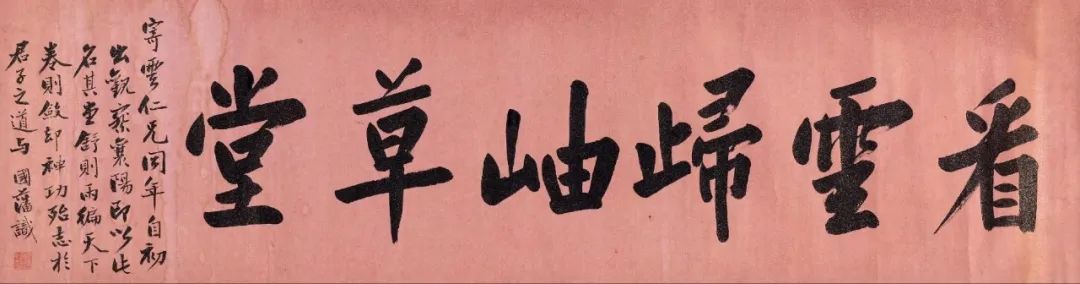 看雲歸岫草堂
寄雲仁兄同年自初
出觀察襄陽即以此
名其堂舒則雨徧天下
卷則斂却神功殆志於
君子之道与 國藩識